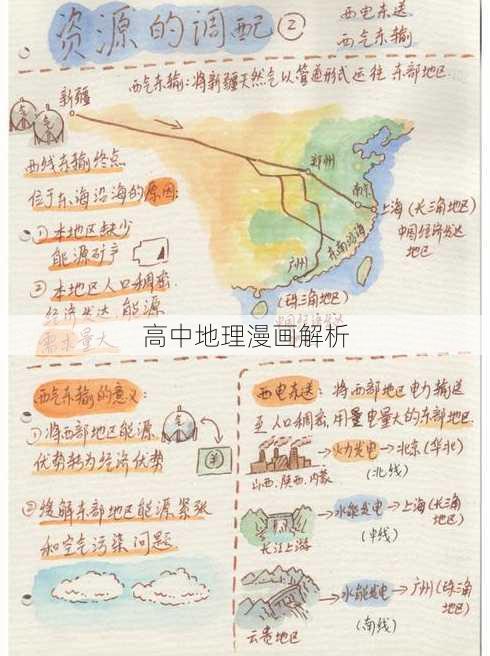 资源的调配②
西电东送
西气东输
西气东输:将新疆天然气以管道形式运往 东部地区.
新疆
气
气
西线东输终点
位于东海沿海的原因:
①本地区缺少
能源矿产
②本地区人口稠密,
经济发达,能源
需求量大
郑州
南京
上海(长三角地区)
中国经济发达
地区.
东南沿海
广州
(珠三角地区)
中国经济发达
高中地理漫画解析
西气东输的意义:
①将西部地区能源
优势转为经济优势
气
¥
②缓解东部地区能源紧张
和空气污染问题
西电东送:将西部地区电力输送
至人口稠密,用量电量大的东部地区.
山西.陕西.内蒙
火力发电→北京(华北)
(北线)
长江上游
水能发电→上海(长三角
地区)
(中线)
云贵地区
水能发电→广州(珠三角
地区)
(南线)